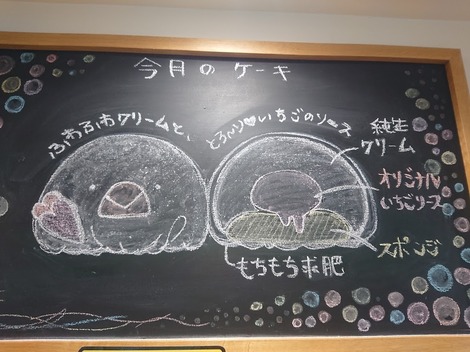 今月のケーキ
ふわふわクリームと、
とろ〜り♡いちごのソース
純生
クリーム
オリジナル
いちごソース
スポンジ
もちもち求肥